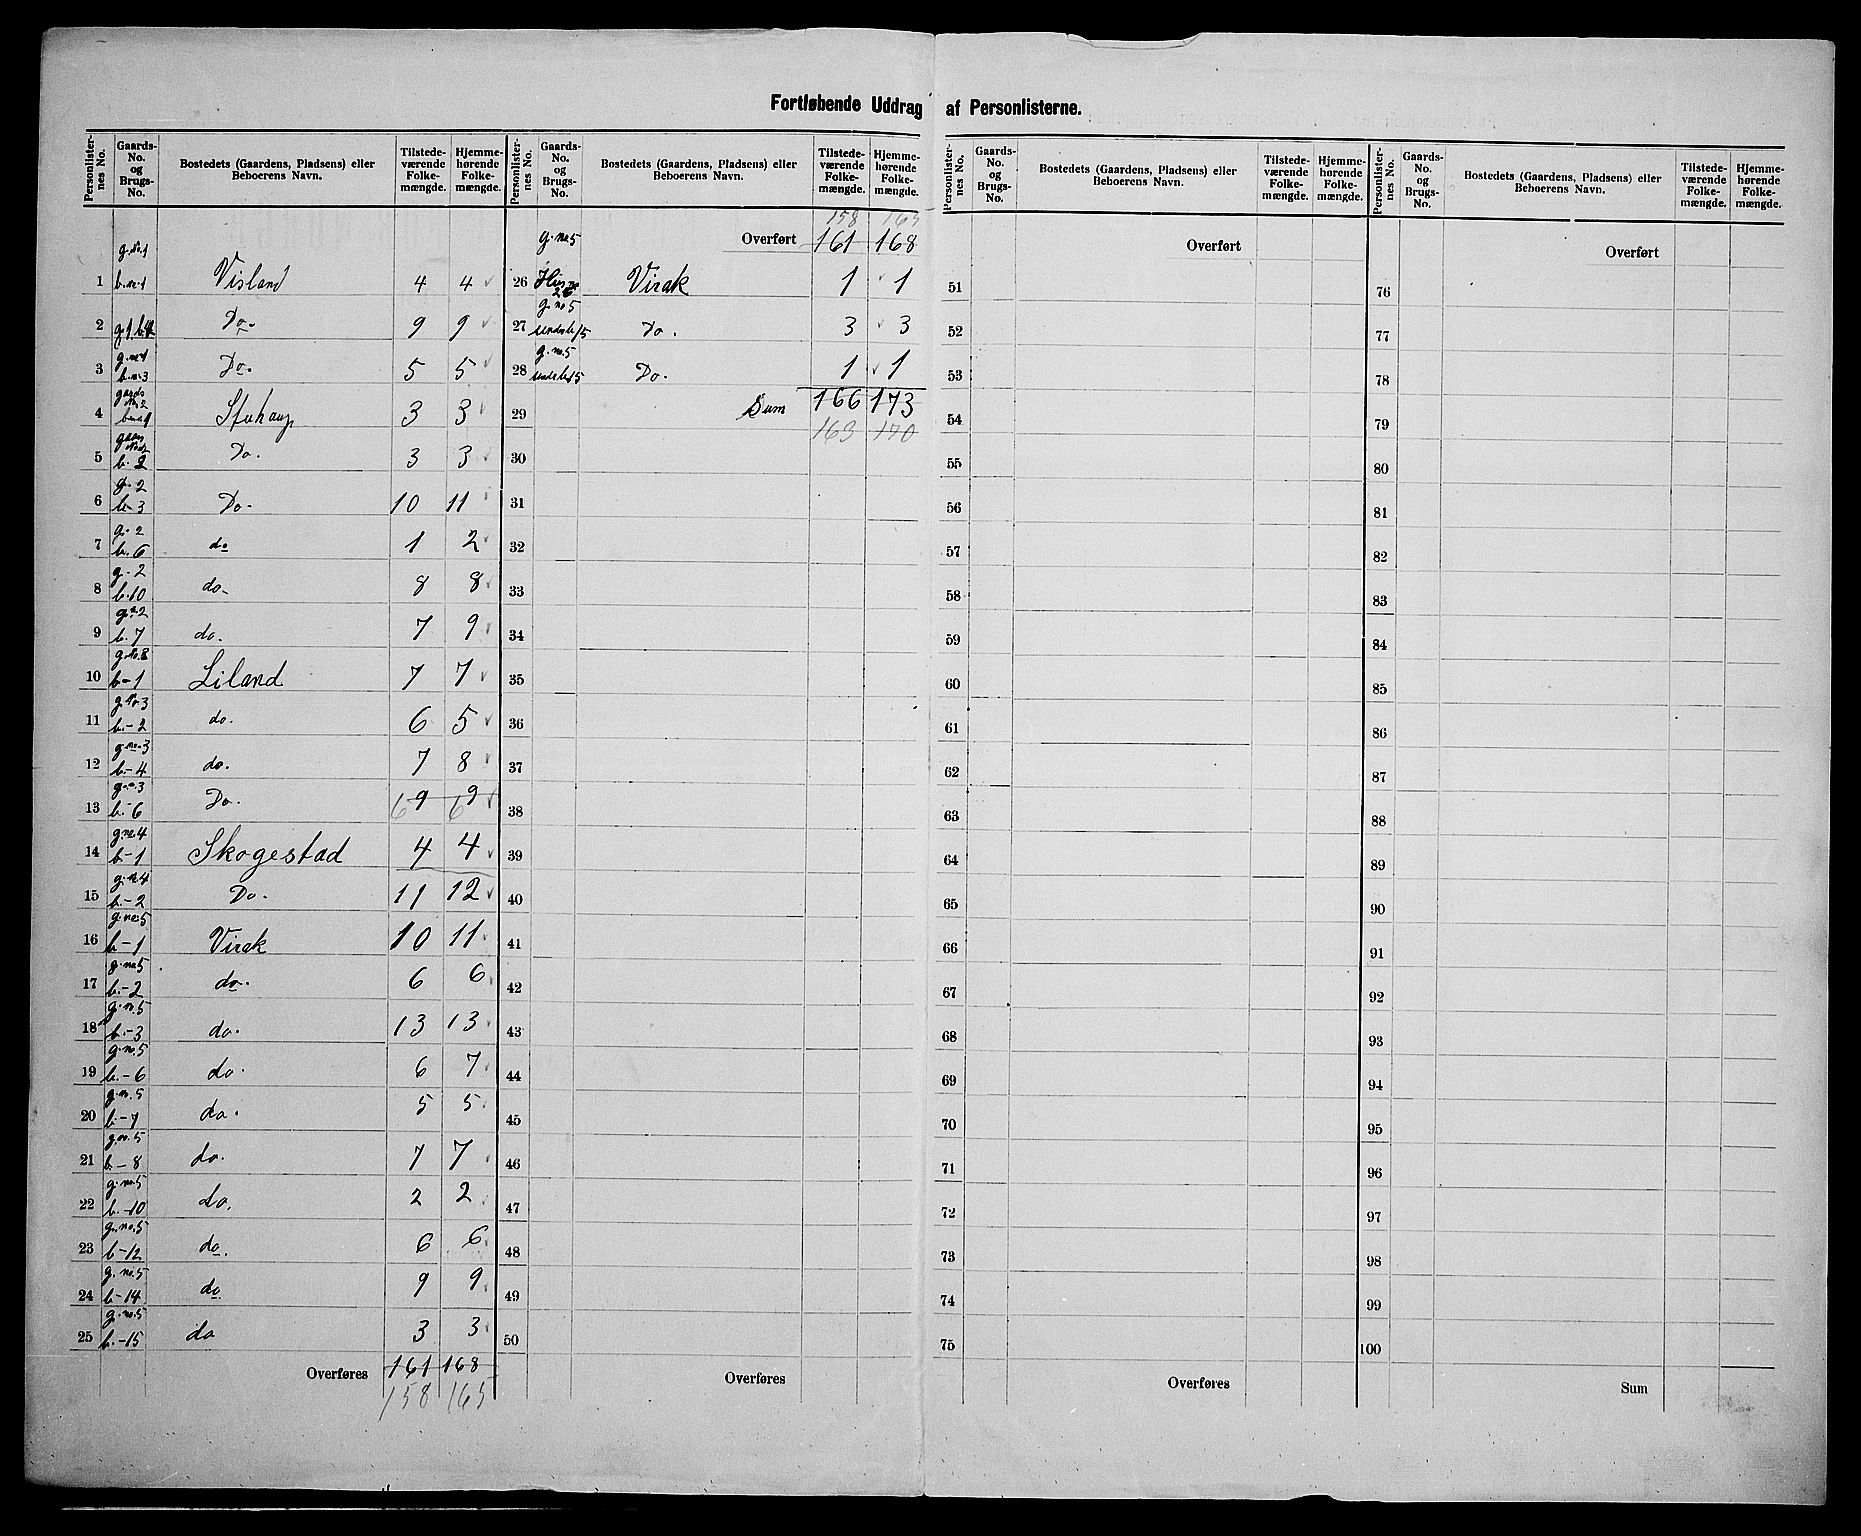 Fortløbende Uddrag af Personlisterne.
Personlisternes No. | Gaards-No. og Brugs-No. | Bostedets (Gaardens, Pladsens) eller Beboerens Navn. | Tilstedeværende Folkemængde. | Hjemmehørende Folkemængde.
1 | g. No. 1 b. n. 1 | Visland | 4 | 4
2 | g. 1 b. | Do. | 9 | 9
3 | g. n. 1 b. n. 3 | Do. | 5 | 5
4 | gaards No. 2 | Stuhaug | 3 | 3
5 | b. 2 | Do. | 3 | 3
6 | g. 2 b. 3 | Do. | 10 | 11
7 | g. 2 b. 6 | do | 1 | 2
8 | g. 2 b. 10 | do. | 8 | 8
9 | g. n. 2 b. 7 | do. | 7 | 9
10 | g. No. 3 b - 1 | Liland | 7 | 7
11 | g. No. 3 b. - 2 | do. | 6 | 5
12 | g. no. 3 b. - 4 | do. | 7 | 8
13 | g. n. 3 b. - 6 | Do. | 9 6 | 9 6
14 | g. no. 4 b - 1 | Skogestad | 4 | 4
15 | g. n. 4 b. - 2 | Do. | 11 | 12
16 | g. no. 5 b - 1 | Virak | 10 | 11
17 | g. no. 5 b. - 2 | do. | 6 | 6
18 | g. n. 5 b. - 3 | do. | 13 | 13
19 | g. no. 5 b. - 6 | do. | 6 | 7
20 | g. n. 5 b. - 7 | do. | 5 | 5
21 | g. no. 5 b - 8 | do. | 7 | 7
22 | g. no. 5 b. - 10 | do. | 2 | 2
23 | g. no. 5 b - 12 | do. | 6 | 6
24 | g. no. 5 b - 14 | do | 9 | 9
25 | g. no. 5 b. - 15 | do | 3 | 3
Overføres | 161 | 168
158 | 165
Personlisternes No. | Gaards-No. og Brugs-No. | Bostedets (Gaardens, Pladsens) eller Beboerens Navn. | Tilstedeværende Folkemængde. | Hjemmehørende Folkemængde.
158 | 165
Overført | 161 | 168
26 | g. no. 5 | Virak | 1 | 1
27 | g. no 5 | Do. | 3 | 3
28 | g. no. 5 | Do. | 1 | 1
29 | Sum | 166 | 173
163 | 170
30
31
32
33
34
35
36
37
38
39
40
41
42
43
44
45
46
47
48
49
50
Overføres
Personlisternes No. | Gaards-No. og Brugs-No. | Bostedets (Gaardens, Pladsens) eller Beboerens Navn. | Tilstedeværende Folkemængde. | Hjemmehørende Folkemængde.
Overført
51
52
53
54
55
56
57
58
59
60
61
62
63
64
65
66
67
68
69
70
71
72
73
74
75
Overføres
Personlisternes No. | Gaards-No. og Brugs-No. | Bostedets (Gaardens, Pladsens) eller Beboerens Navn. | Tilstedeværende Folkemængde. | Hjemmehørende Folkemængde.
Overført
76
77
78
79
80
81
82
83
84
85
86
87
88
89
90
91
92
93
94
95
96
97
98
99
100
Sum